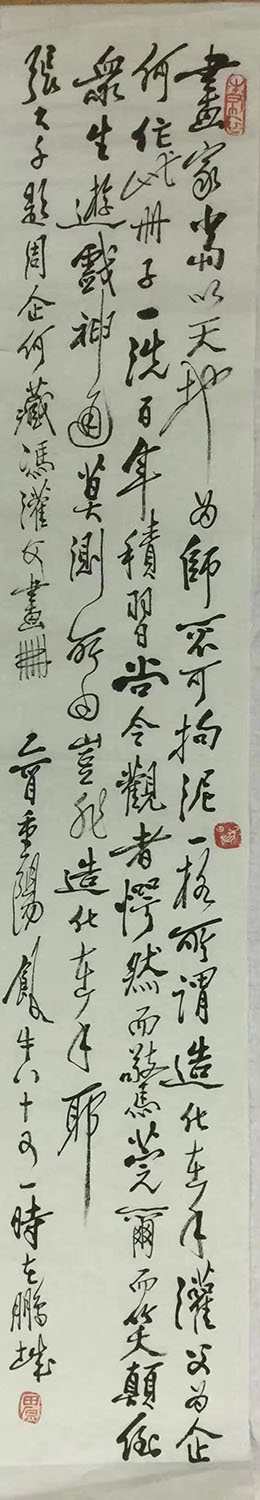 畫家當以天地為師不可拘泥一格所謂造化在手灌父為企
何作此冊子一洗百年積習當令觀者愕然而驚莞爾而笑顛倒
眾生遊戲神通莫測所由豈非造化在手耶
張大千題周企何藏馮灌父畫冊 乙酉重陽 牛八十又一時在鵬城